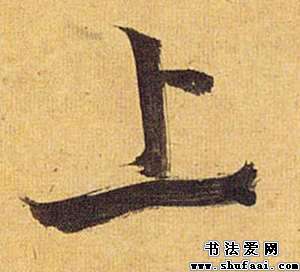 上
书法爱网
www.shufaai.com